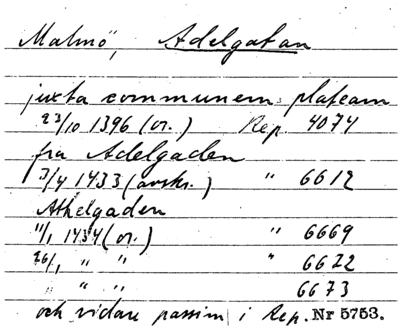 Malmö, Adelgatan
juxta communem plateam
23/10 1396 (or.) Rep. 4074
fra Adelgaden
3/4 1433 (avskr.) " 6612
Athelgaden
11/1 1434 (or.) " 6669
26/1 " " " 6672
" " " 6673
och vidare passim i Rep. Nr 5753.